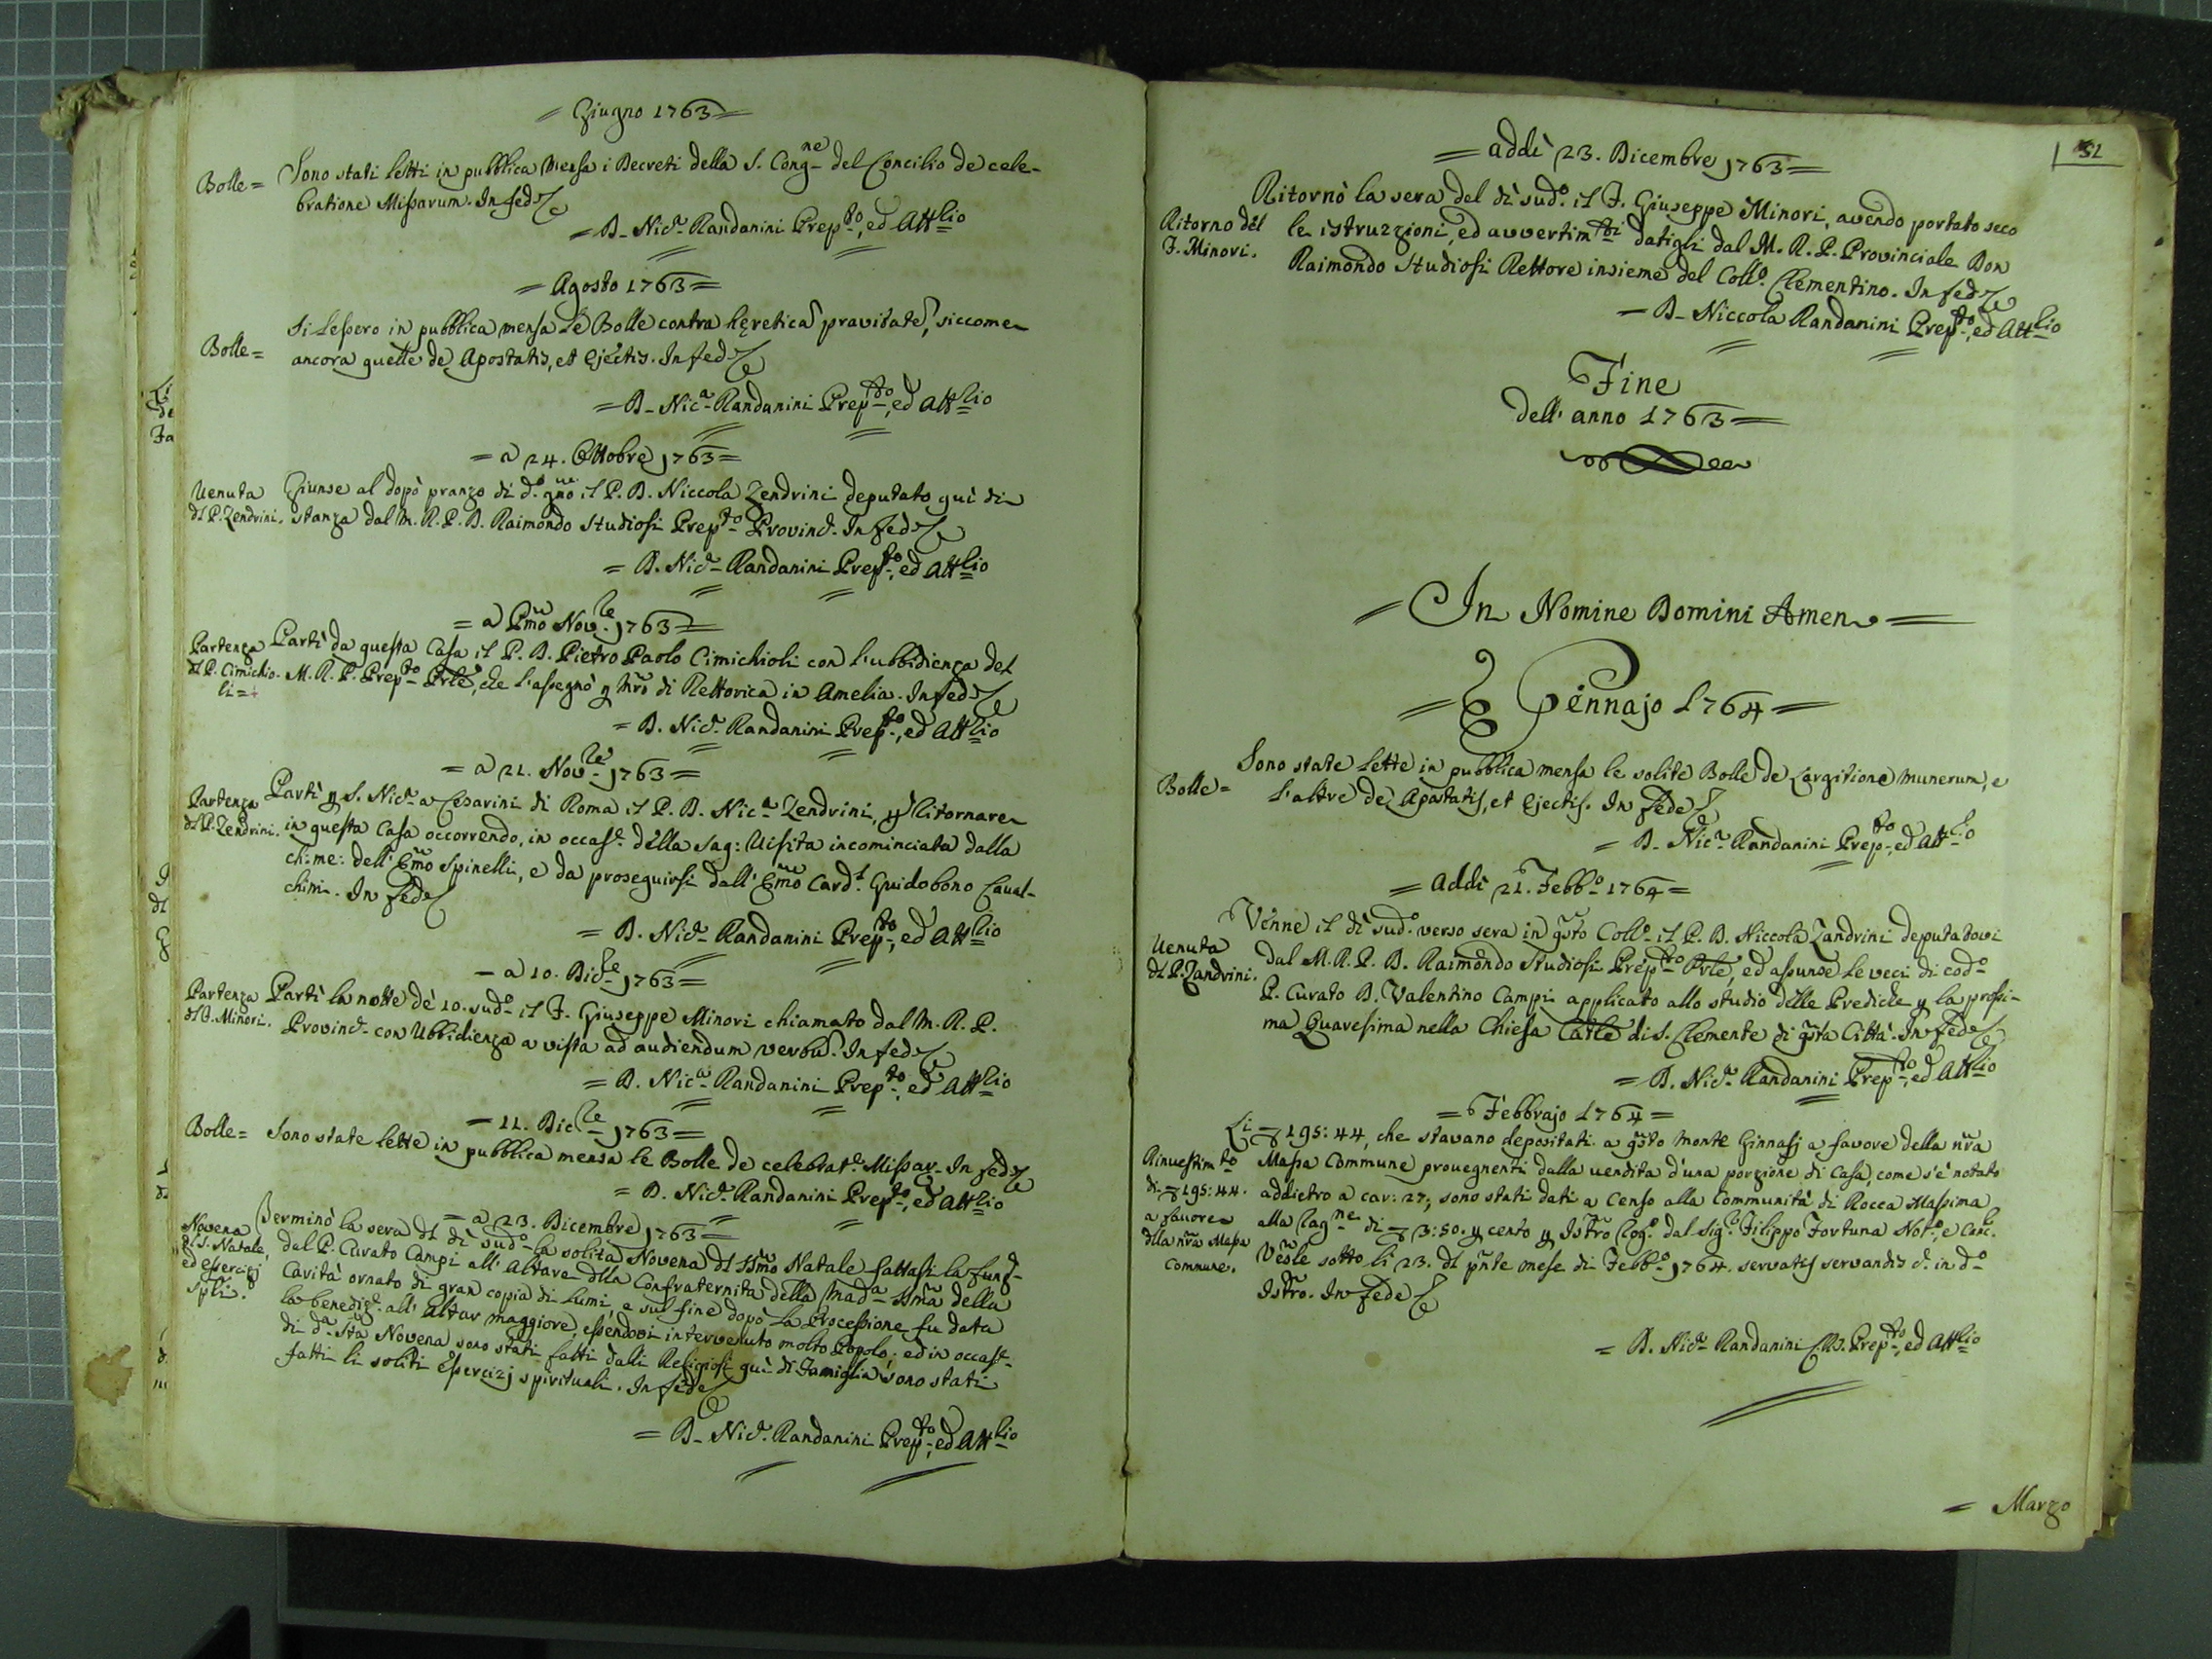 = Giugno 1763 =
Bolle = Sono stati letti in pubblica Mensa i Decreti della S. Cong.ne del Concilio de cele-
bratione Missarum. In fede
= D. Nic.a Randanini Prep.to, ed Att.lio
= Agosto 1763 =
Si lessero in pubblica mensa le Bolle contra hęretica pravitate, siccome
Bolle = ancora quelle de Apostatis, et Ejectis. In fede
= D. Nic.a Randanini Prep.to, ed Att.lio
= a 24. Ottobre 1763 =
Venuta Giunse al dopo pranzo di d.o gno il P. D. Niccola Zendrini deputato qui di
dl P. Zendrini. stanza dal M. R. P. D. Raimondo Studiosi Prep.to Provinc. In fede
= D. Nic.a Randanini Prep.to, ed Att.lio
= a Pmo Nov.re 1763 =
Partenza Partì da questa Casa il P. D. Pietro Paolo Cimichioli con l'ubbidienza del
dl P. Cimichio- M. R. P. Prep.to Prle, che l'assegnò p Mro di Rettorica in Amelia. In fede
li =
= D. Nic.a Randanini Prep.to, ed Att.lio
= a 21. Nov.re 1763 =
Partenza Partì p S. Nic.a a Cesarini di Roma il P. D. Nic.a Zendrini, p ritornare
dl P. Zendrini. in questa Casa occorrendo, in occas.e della Sag: Visita incominciata dalla
ch: me: dell' Emo Spinelli, e da proseguirsi dall' Emo Card.l Guidobono Caval-
chini. In fede
= D. Nic.a Randanini Prep.to, ed Att.lio
= a 10. Dic.re 1763 =
Partenza Partì la notte de 10. sud.o il F. Giuseppe Minori chiamato dal M. R. P.
dl F. Minori. Provinc. con Ubbidienza a vista ad audiendum verbu. In fede
= D. Nic.a Randanini Prep.to, ed Att.lio
= 11. Dic.re 1763 =
Bolle = Sono state lette in pubblica mensa le Bolle de celebrat.e Missar. In fede
= D. Nic.a Randanini Prep.to, ed Att.lio
= a 23. Dicembre 1763 =
Novena Terminò la sera dl dì sud.o la solita Novena dl SSmo Natale fattasi la funz.e
di S. Natale, dal P. Curato Campi all' Altare dlla Confraternita della Mad.a SSma della
ed esercizj Carità ornato di gran copia di lumi, e sul fine dopo la Processione fu data
spli. la benediz.e all' Altar maggiore, essendovi intervenuto molto Popolo; ed in occas.e
di d.a Sta Novena sono stati fatti dalli Religiosi qui di Famiglia sono stati
fatti li soliti Essercizj spirituali. In fede
= D. Nic.a Randanini Prep.to, ed Att.lio
32
= addì 23. Dicembre 1763 =
Ritornò la sera del dì sud.o il F. Giuseppe Minori, avendo portato seco
Ritorno del le istruzzioni, ed avvertim.ti datigli dal M. R. P. Provinciale Don
F. Minori. Raimondo Studiosi Rettore insieme del Coll.o Clementino. In fede
= D. Niccola Randanini Prep.to, ed Att.lio
Fine
dell' anno 1763 =
= In Nomine Domini Amen =
= Gennajo 1764 =
Sono state lette in pubblica mensa le solite Bolle de largitione munerum, e
Bolle = l'altre de Apostatis, et Ejectis. In fede
= D. Nic.a Randanini Prep.to, ed Att.lio
= Addì 21. Febb.o 1764 =
Venne il dì sud.o verso sera in qsto Coll.o il P. D. Niccola Zandrini deputatovi
Venuta dal M. R. P. D. Raimondo Studiosi Prep.to Prle, ed assunse le veci di cod.o
dl P. Zandrini. P. Curato D. Valentino Campi applicato allo studio delle Prediche p la prossi-
ma Quaresima nella Chiesa Catle di S. Clemente di qsta Città. In fede
= D. Nic.a Randanini Prep.to, ed Att.lio
= Febbrajo 1764 =
Li 195: 44, che stavano depositati a qsto Monte Ginnasj a favore della nra
Rinvestim.to Massa Commune provegnenti dalla vendita d'una porzione di Casa, come s'è notato
di 195: 44. addietro a car: 27; sono stati dati a Censo alla Communità di Rocca Massima
a favore alla rag.ne di 3: 50. p cento p Istro rog.o dal Sig.r Filippo Fortuna Not.o, e Canc.
dlla nra Massa Veole sotto li 23. dl pnte mese di Febb.o 1764. servatis servandis in d.o
Commune. Istro. In fede
= D. Nic.a Randanini CRS. Prep.to, ed Att.lio
= Marzo